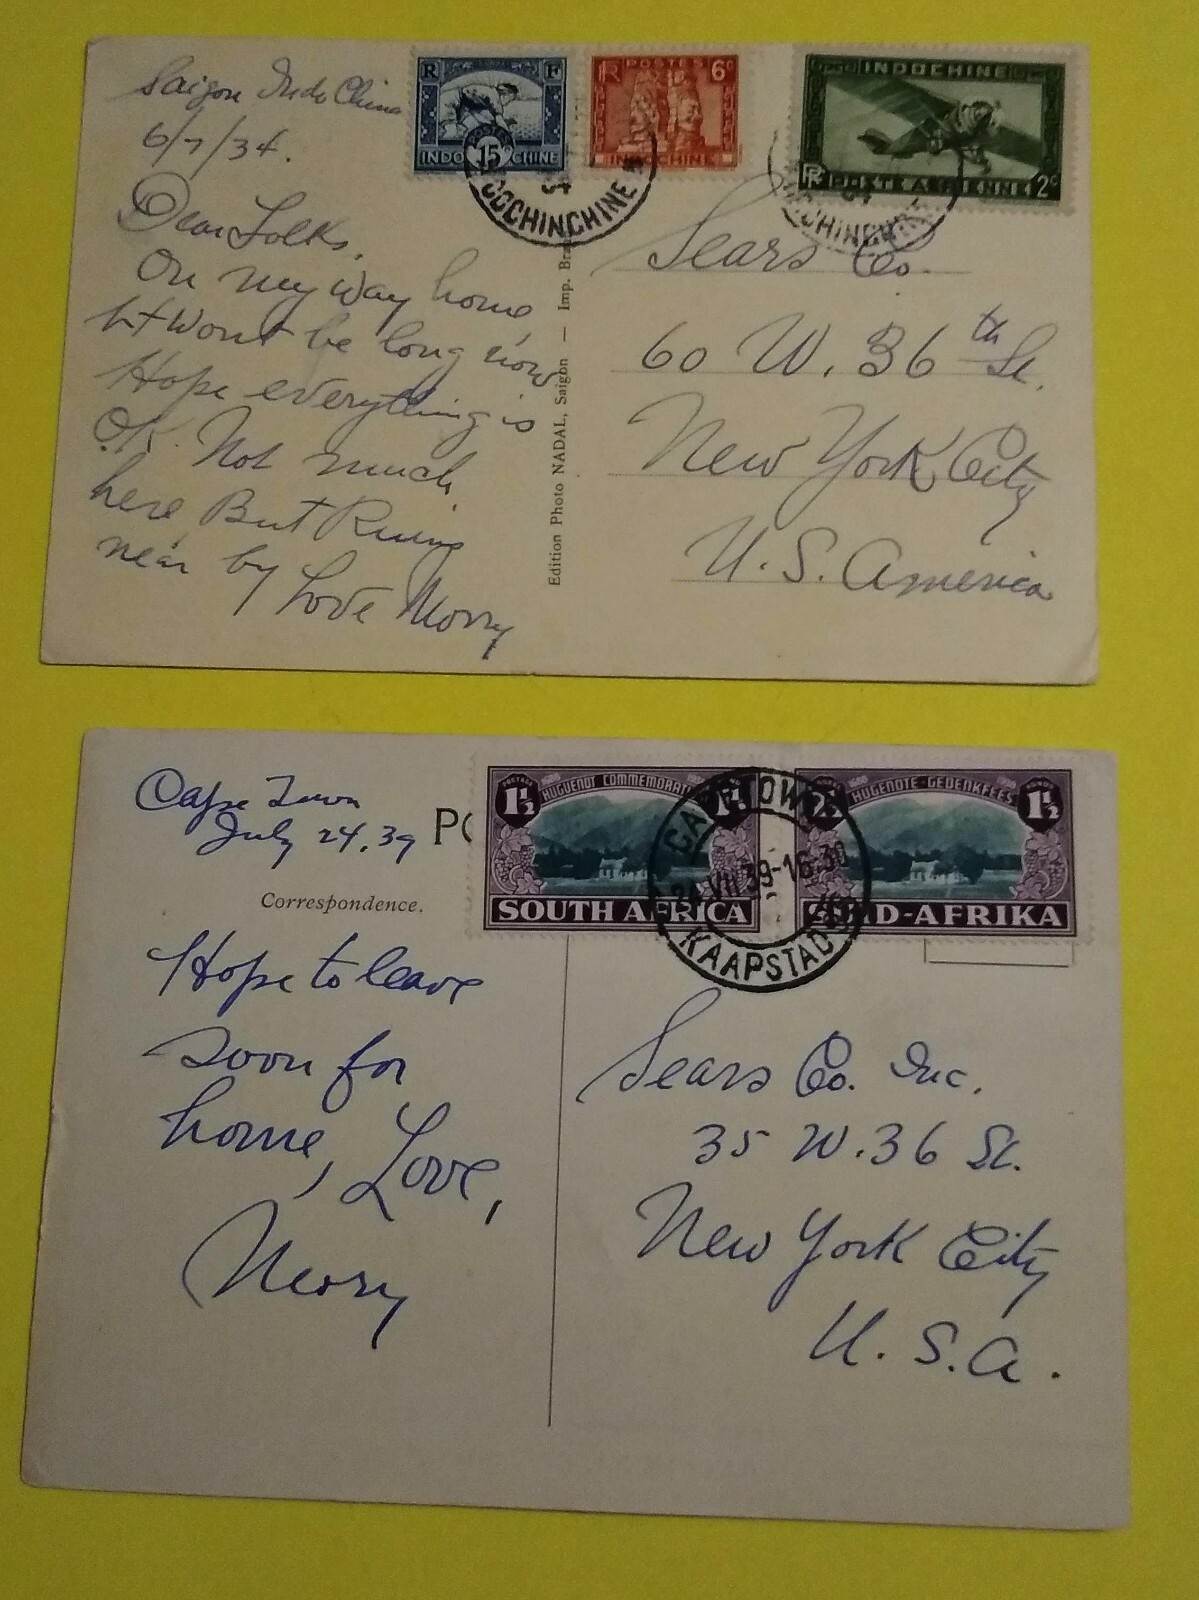 Saigon Indo China
6/7/34.
Dear Folks,
On my way home,
It Wont be long now
Hope everything is
O.K. Not much
here But Ruins
near by Love Morry
R F
POSTES
15c
INDOCHINE
RF POSTES 6c
INDOCHINE
INDOCHINE
RF POSTE AERIENNE 2c
COCHINCHINE
34
Edition Photo NADAL, Saigon — Imp.
Sears Co.
60 W. 36th St.
New York City
U. S. America
Cape Town
July 24.39
Correspondence.
Hope to leave
soon for
home, Love,
Morry
HUGUENOT COMMEMORAT
1½
SOUTH AFRICA
HUGENOTE-GEDENKFEES
1½
SUID-AFRIKA
CAPE TOWN
24.VII 39-16.30
KAAPSTAD
Sears Co. Inc.
35 W. 36 St.
New York City
U. S. A.